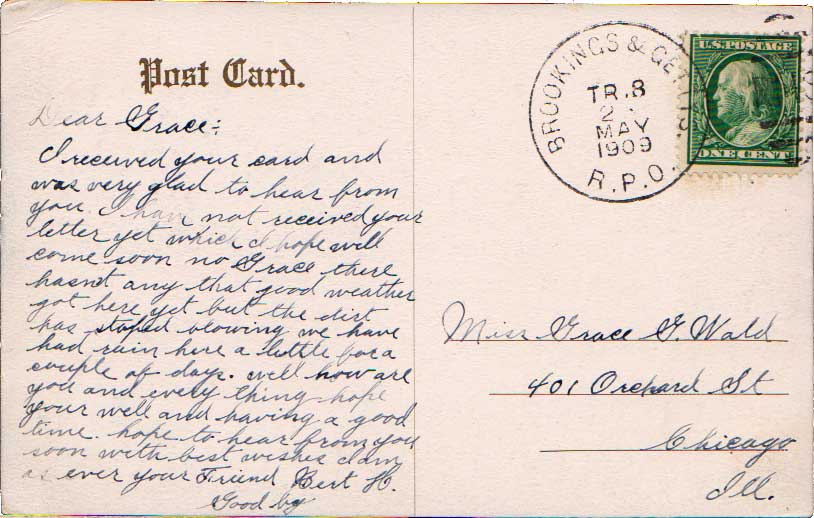 Post Card.
Dear Grace:
I received your card and
was very glad to hear from
you. I have not received your
letter yet which I hope will
come soon no Grace there
hasnt any that good weather
got here yet but the dirt
has stoped blowing we have
had rain here a little for a
couple of days. well how are
you and every thing hope
your well and having a good
time. hope to hear from you
soon with best wishes I am
as ever your Friend Bert H.
Good by
BROOKINGS & GETTYS
TR. 8
2
MAY
1909
R.P.O.
U.S. POSTAGE
ONE CENT
Miss Grace G. Wald
401 Orchard St
Chicago
Ill.